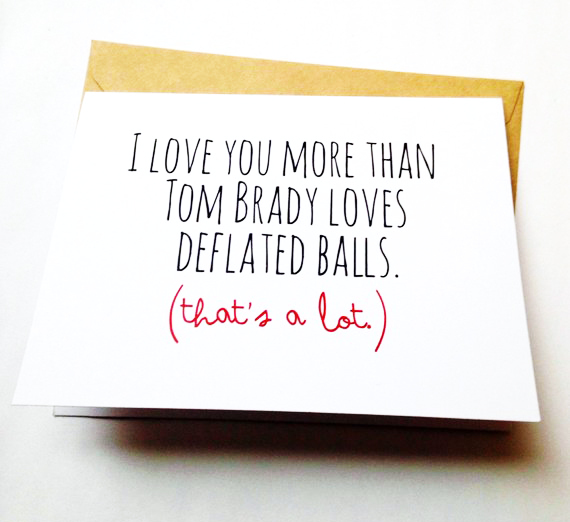 I LOVE YOU MORE THAN
TOM BRADY LOVES
DEFLATED BALLS.
(that's a lot.)